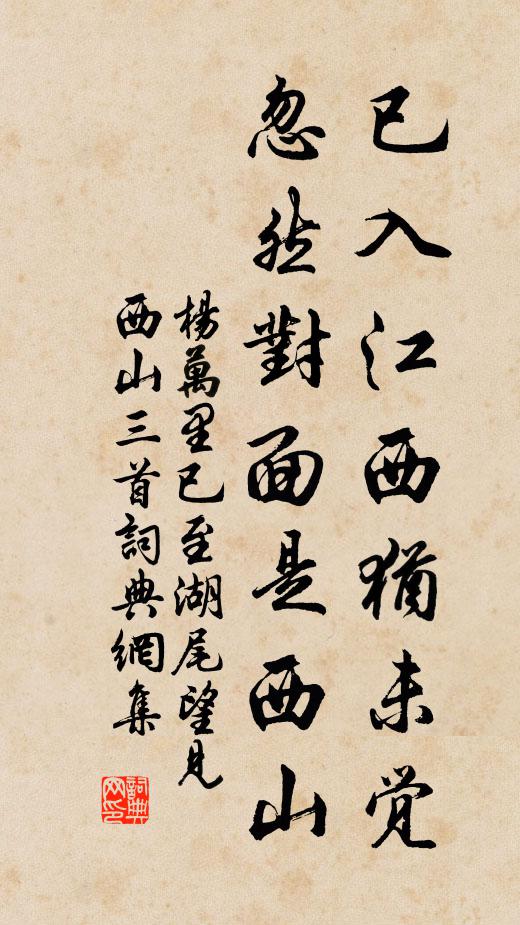 已入江西猶未觉
忽然對面是西山
楊萬里已至湖尾望見
西山三首詞典網集
詞典网印